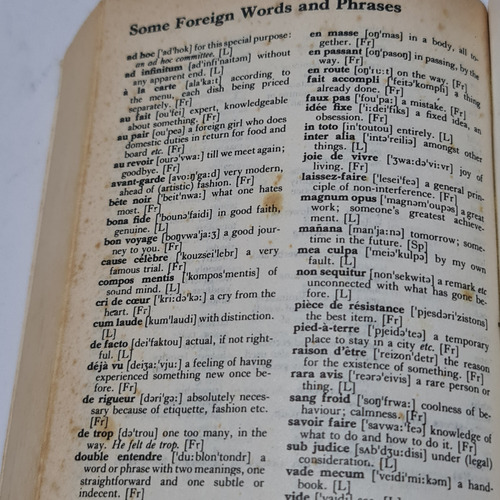 Some Foreign Words and Phrases
ad hoc ['ad'hok] for this special purpose:
an ad hoc committee. [L]
ad infinitum [ad'infi'naitəm] without
any apparent end. [L]
à la carte [ala'ka:t] according to
the menu, each dish being priced
separately. [Fr]
au fait [ou'fei] expert, knowledgeable
about something. [Fr]
au pair [ou'peə] a foreign girl who does
domestic duties in return for food and
board etc. [Fr]
au revoir [ourə'vwa:] till we meet again;
goodbye. [Fr]
avant-garde [avoŋ'ga:d] very modern,
ahead of (artistic) fashion. [Fr]
bête noir ['beit'nwa:] what one hates
most. [Fr]
bona fide ['bounə'faidi] in good faith,
genuine. [L]
bon voyage [boŋvwa'ja:ʒ] a good jour-
ney to you. [Fr]
cause célèbre ['kouzsei'lebr] a very
famous trial. [Fr]
compos mentis ['kompos'mentis] of
sound mind. [L]
cri de cœur ['kri:də'kə:] a cry from the
heart. [Fr]
cum laude [kum'laudi] with distinction.
[L]
de facto [dei'faktou] actual, if not right-
ful. [L]
déjà vu [deiʒa:'vju:] a feeling of having
experienced something new once be-
fore. [Fr]
de rigueur [dəri'gə:] absolutely neces-
sary because of etiquette, fashion etc.
[Fr]
de trop [də'trou] one too many, in the
way. He felt de trop. [Fr]
double entendre ['du:blon'tondr] a
word or phrase with two meanings, one
straightforward and one subtle or
indecent. [Fr]
en masse [oŋ'mas] in a body, all to-
gether. [Fr]
en passant [oŋ'pasoŋ] in passing, by the
way. [Fr]
en route [oŋ'ru:t] on the way. [Fr]
fait accompli ['feitə'kompli] a thing
already done. [Fr]
faux pas ['fou'pa:] a mistake. [Fr]
idée fixe ['i:dei'fiks] a fixed idea, an
obsession. [Fr]
in toto [in'toutou] entirely. [L]
inter alia ['intə'reiliə] amongst other
things. [L]
joie de vivre ['ʒwa:də'vi:vr] joy of
living. [Fr]
laissez-faire ['lesei'feə] a general prin-
ciple of non-interference. [Fr]
magnum opus ['magnəm'oupəs] a great
work; someone's greatest achieve-
ment. [L]
mañana [man'ja:nə] tomorrow; some-
time in the future. [Sp]
mea culpa ['meiə'kulpə] by my own
fault. [L]
non sequitur [non'sekwitə] a remark etc
unconnected with what has gone be-
fore. [L]
pièce de résistance ['pjesdəri'zistons]
the best item. [Fr]
pied-à-terre ['pjeidə'teə] a temporary
place to stay in a city etc. [Fr]
raison d'être ['reizon'detr] the reason
for the existence of something. [Fr]
rara avis ['reərə'eivis] a rare person or
thing. [L]
sang froid ['soŋ'frwa:] coolness of be-
haviour; calmness. [Fr]
savoir faire ['savwa:'feə] knowledge of
what to do and how to do it. [Fr]
sub judice [sʌb'dʒu:disi] under (legal)
consideration. [L]
vade mecum ['veidi'mi:kəm] a hand-
book. [L]
vide ['vaidi]